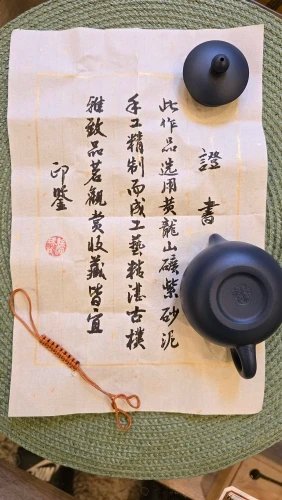 證書
此作品選用黄龍山礦紫砂泥
手工精制而成工藝精湛古樸
雅致品茗觀赏收藏皆宜
印鑒